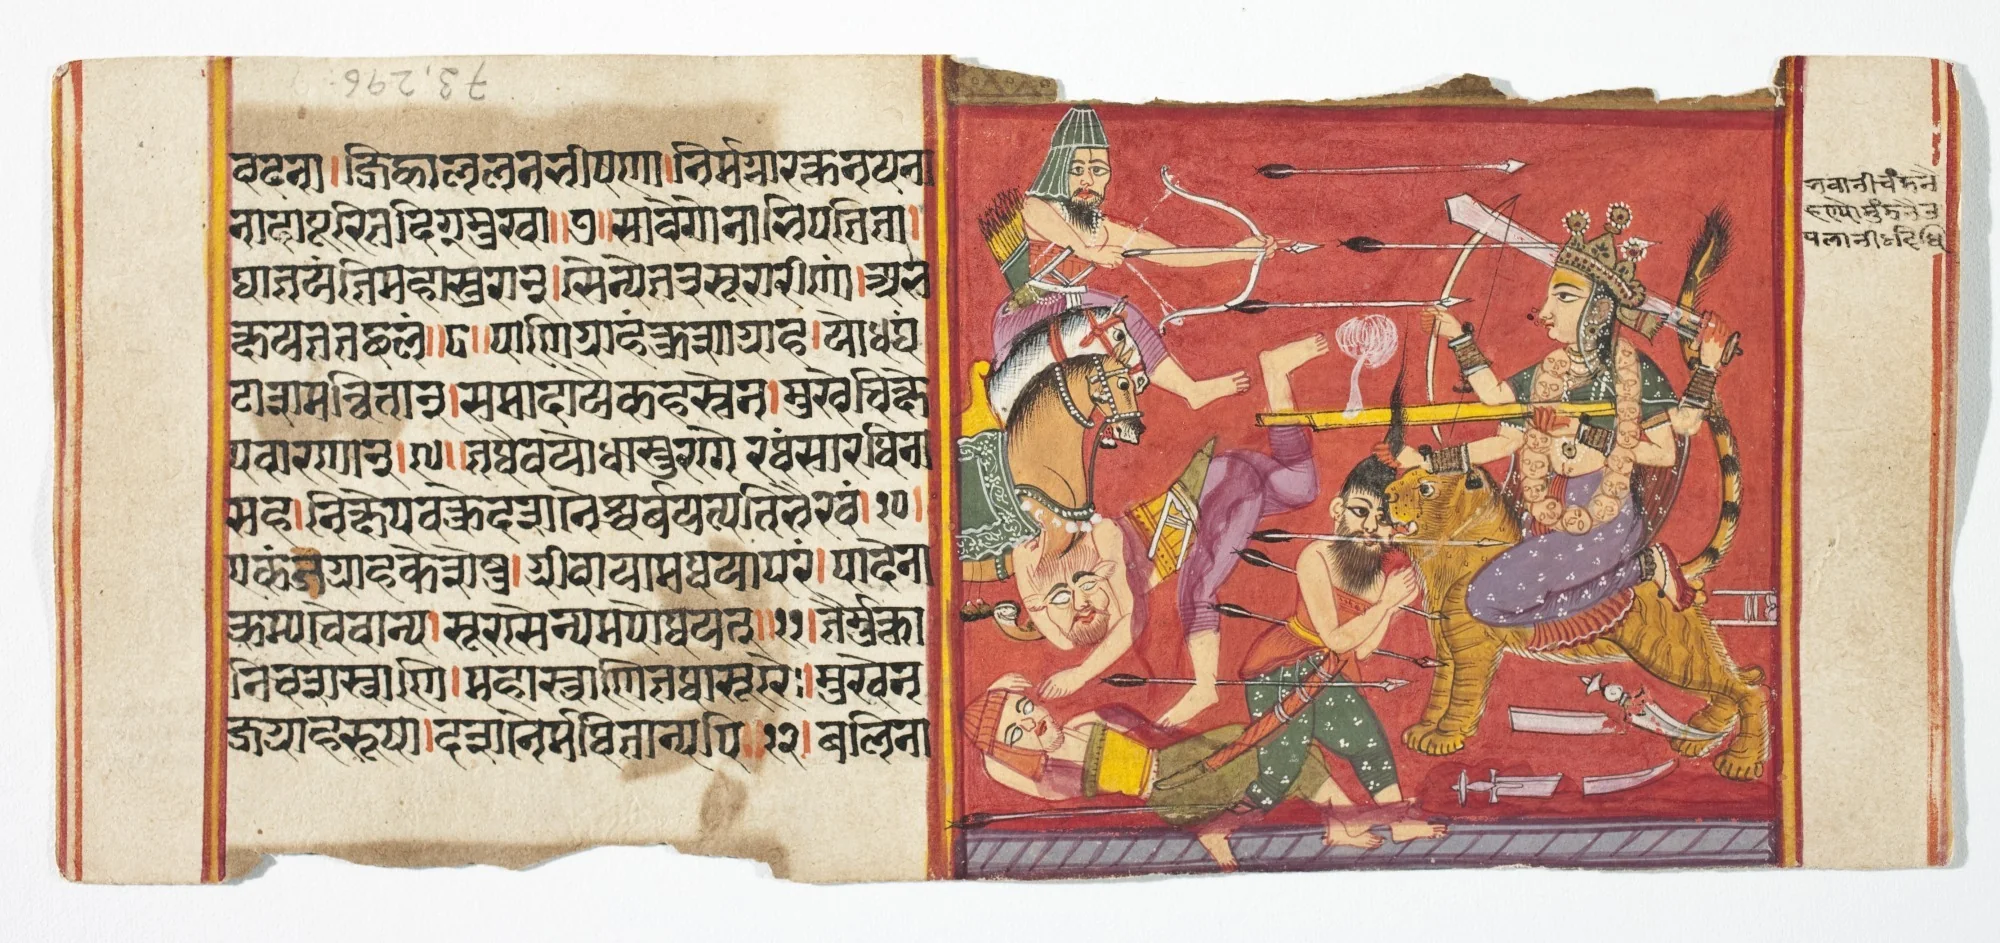 वदना।जिह्वाललनभीषणा।निर्मग्नारक्तनयना
नादापूरितदिग्मुखा॥७॥सावेगेनाभिपतिता।
घातयंतिमहासुरान्।सैन्येतत्रसूरारीणां।अभ
क्षयततद्बलं॥८॥पार्ष्णिग्राहंकुशग्राह।योधघं
टासमन्वितान्।समादायैकहस्तेन।मुखेचिक्षे
पवारणान्।९॥तथैवयोधंस्तुरगै रथंसारथिना
सह।निक्षेपवक्त्रेदशनैश्चर्वयत्यतिभैरवं।१०।
एकंजग्राहकेशेषु।ग्रीवायामथचापरं।पादेना
क्रम्यचैवान्य।सूरसैन्यमपोथयत्॥११।तैर्मुक्ता
निचशस्त्राणि।महास्त्राणितथासूरैः।मुखेन
जग्राहरूषा।दशनैर्मथितान्यपि॥१२।बलिना
73.296